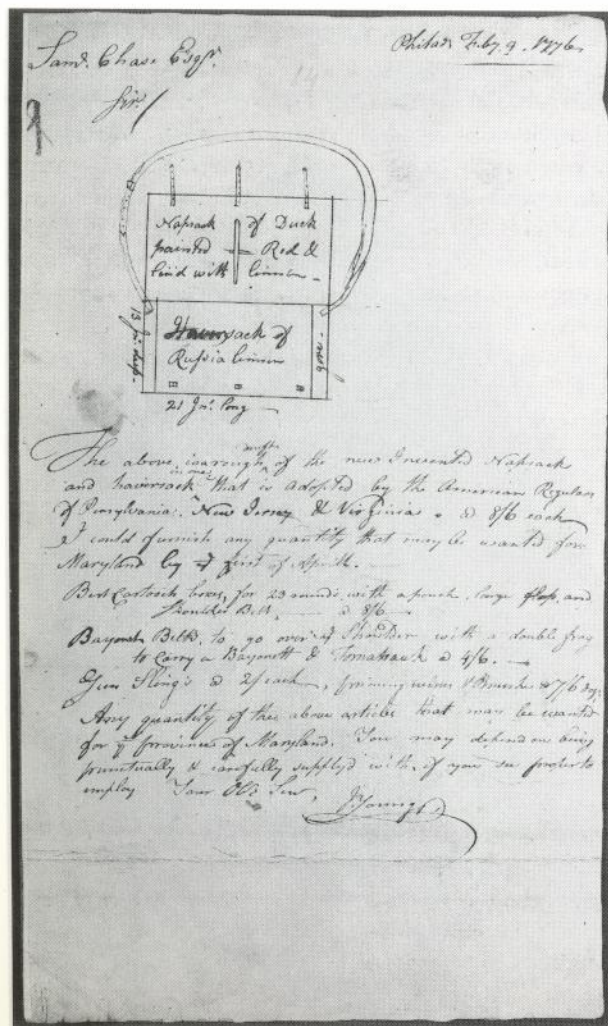 Philad. Feby. 9. 1776
Saml. Chase Esqr.
Sir/
Napsack of Duck
painted Red &
lin'd with linnen
Haversack of
Russia linnen
13 Ins. deep
21 Ins. long
The above is a rough of the new Invented Napsack
and haversack in one that is adopted by the American Regulars
of Pensylvania. New Jersey & Virginia. @ 8/6 each
I could furnish any quantity that may be wanted for
Maryland by ye first of Aprill.
Best Cartooch boxes, for 23 rounds with a pouch, large flap and
Shoulder Belt, @ 8/6
Bayonet Belts, to go over ye Shoulder with a double frog
to Carry a Bayonett & Tomahawk @ 4/6.
Gun Slings @ 2/ each, priming wires & Brushes @ 7/6 dz:
Any quantity of the above articles that may be wanted
for ye province of Maryland. You may depend on being
punctually & carefully supply'd with, if you see proper to
employ Your Obt. Serv,
J Young